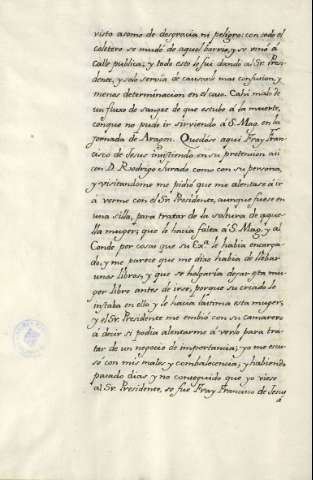 visto asomo de desgracia, ni peligro: con todo el
cochero se mudó de aquel barrio, y se vinó á
calle publica; y todo esto le fue dando al Sr. Presi-
dente, y solo servia de causarle mas confusion, y
menos determinacion en el caso. Cahi malo de
un fluxo de sangre de que estube á la muerte,
conque no pude ir sirviendo á S. Mag. en la
jornada de Aragon. Quedóse aqui Fray Fran-
cisco de Jesus insistiendo en su pretencion asi
con D. Rodrigo Jurado como con su persona,
y visitandome me pidió que me alentase á ir
a verme con el Sr. Presidente, aunque fuese en
una silla, para tratar de la soltura de aque-
lla muger, que le hacia falta á S. Mag. y al
Conde por cosas que su Exª. le habia encarga-
do, y me parece que me dixo habia de llebar
unas libras, y que se holgaria dejar qta mu-
ger libre antes de irse, porque su criado le
instaba en ello y le havia lastima esta muger,
y el Sr. Presidente me embió con su camarero
á decir si podia alentarme á verle para tra-
tar de un negocio de importancia; yo me escu-
sé con mis males y combalecencia; y habiendo
pasado dias y no conseguido que yo viese
al Sr. Presidente, se fue Fray Francisco de Jesus
á